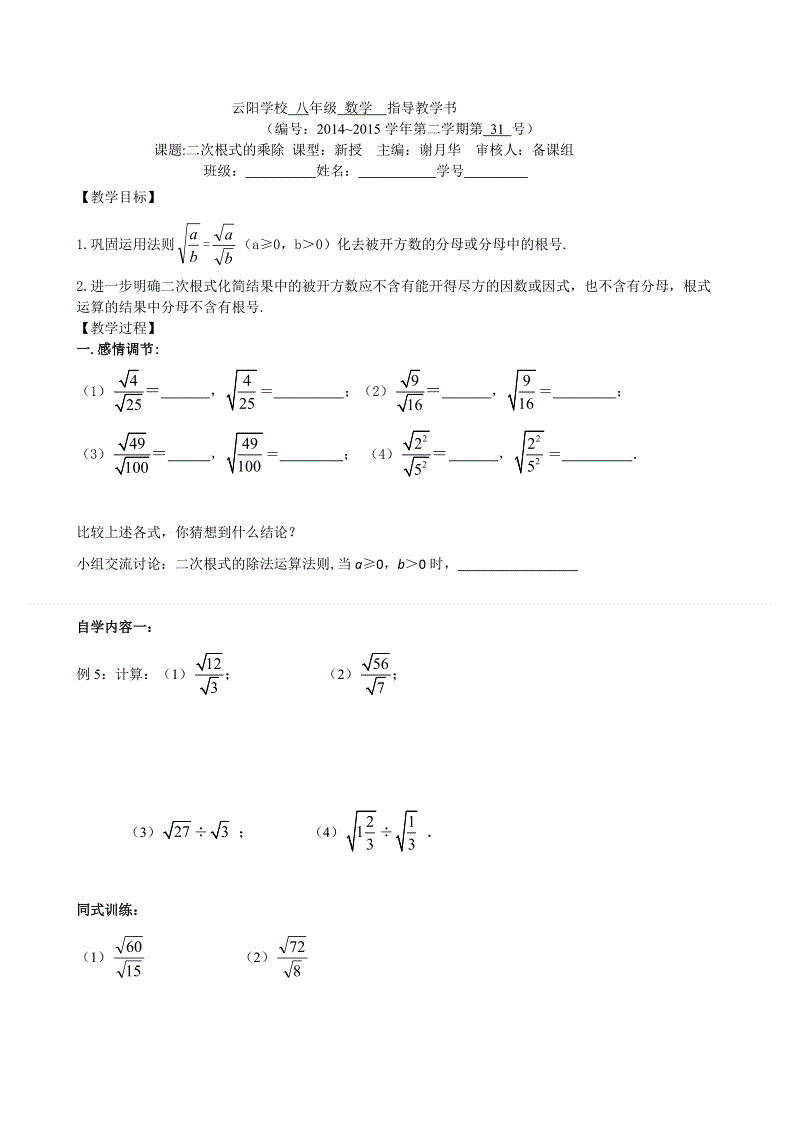 云阳学校 八年级 数学 指导教学书
（编号：2014~2015 学年第二学期第 31 号）
课题:二次根式的乘除 课型：新授 主编：谢月华 审核人：备课组
班级：__________姓名：___________学号_________
【教学目标】
1.巩固运用法则 √(a/b) = √a/√b （a≥0，b＞0）化去被开方数的分母或分母中的根号.
2.进一步明确二次根式化简结果中的被开方数应不含有能开得尽方的因数或因式，也不含有分母，根式
运算的结果中分母不含有根号.
【教学过程】
一.感情调节:
（1）√4/√25＝_______，√(4/25)＝__________；（2）√9/√16＝_______，√(9/16)＝_________；
（3）√49/√100＝______，√(49/100)＝_________； （4）√2²/√5²＝_______，√(2²/5²)＝__________．
比较上述各式，你猜想到什么结论？
小组交流讨论：二次根式的除法运算法则,当 a≥0，b＞0 时，_________________
自学内容一：
例 5：计算：（1）√12/√3； （2）√56/√7；
（3）√27 ÷ √3 ； （4）√(1 2/3) ÷ √(1/3) ．
同式训练：
（1）√60/√15 （2）√72/√8